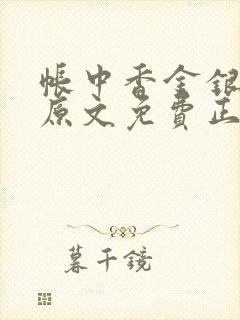 帳中香金銀
原文免費正
暮千鏡